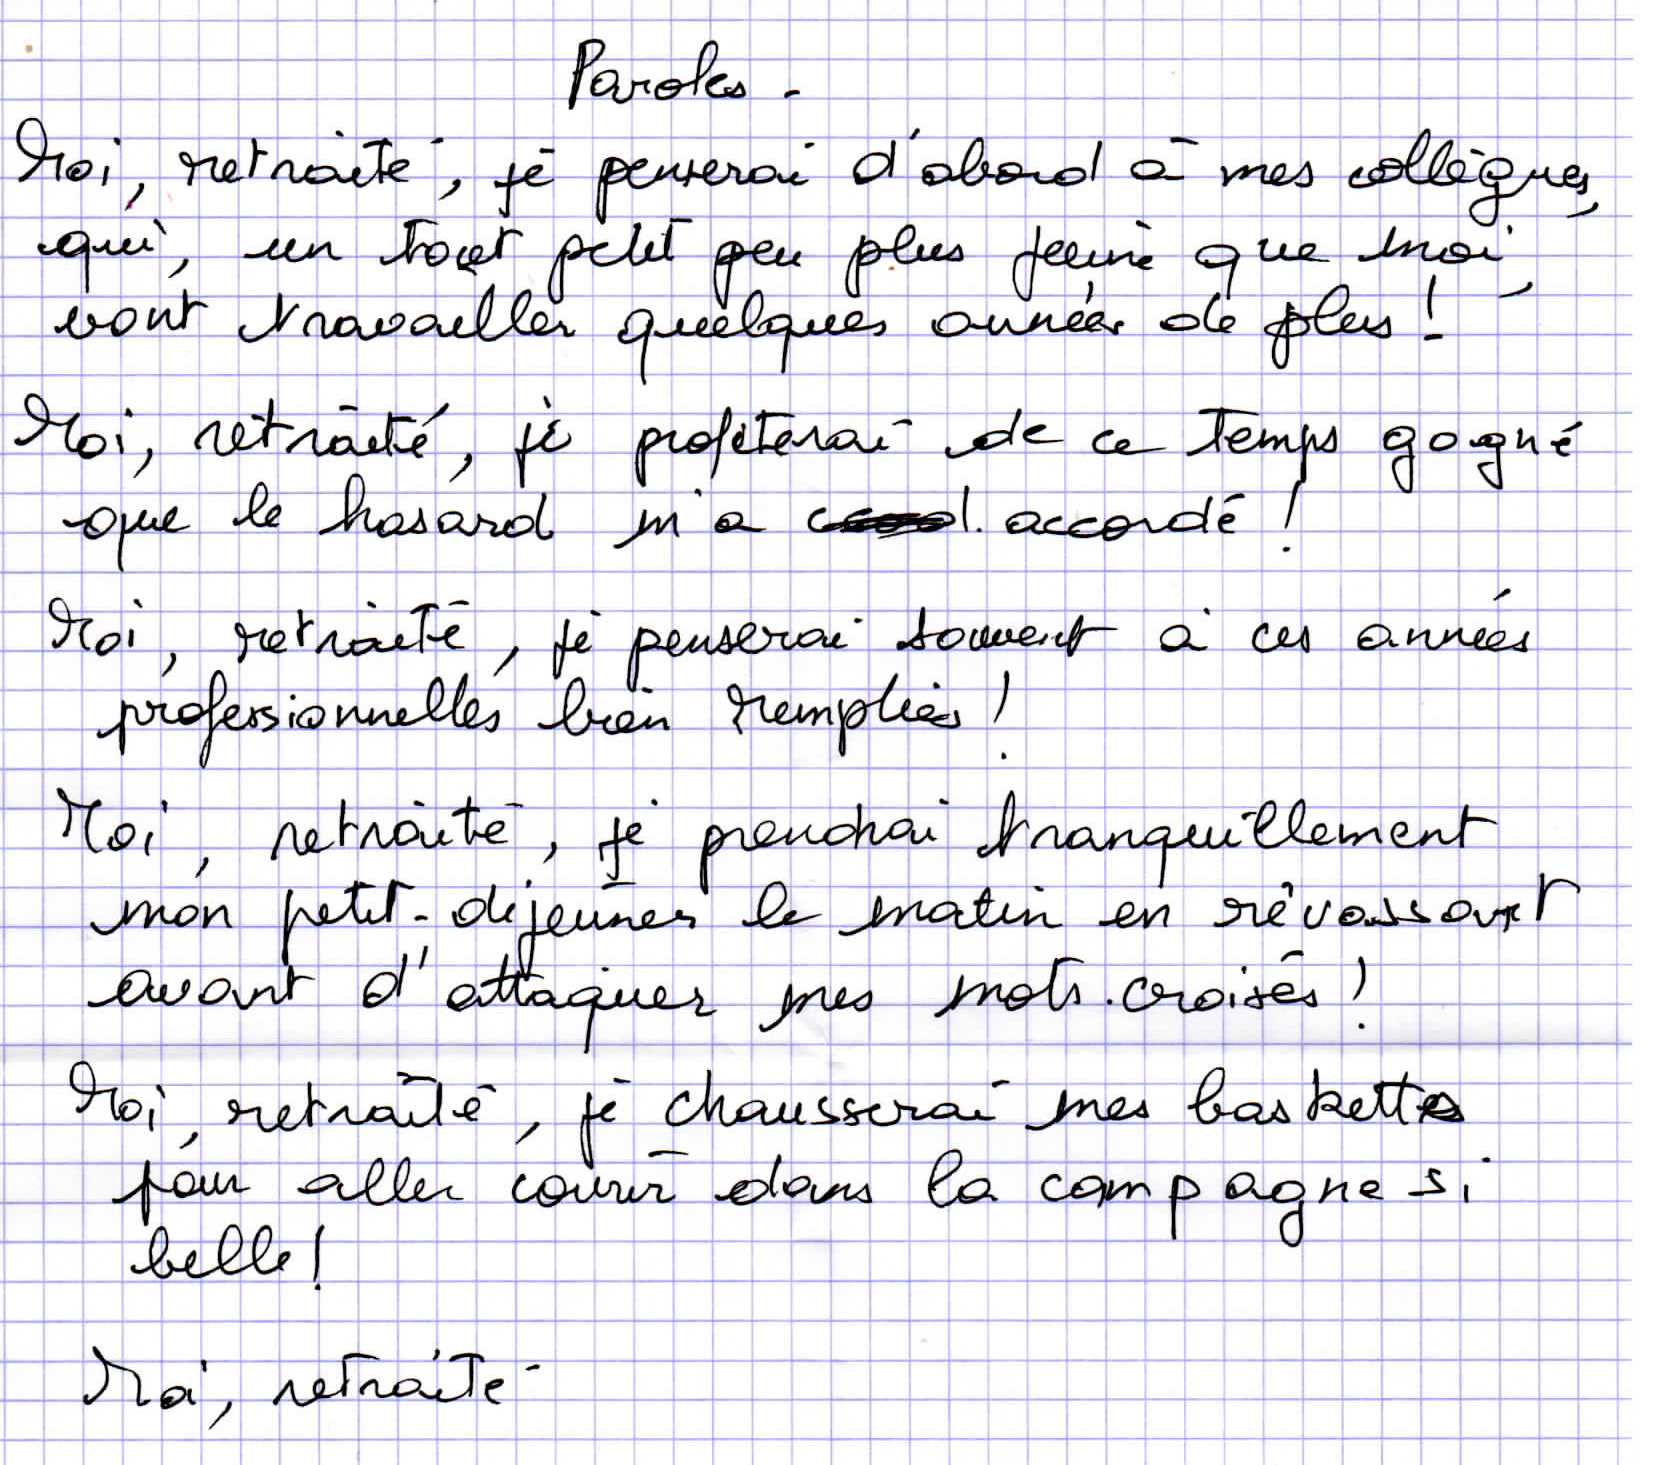 Paroles.
Moi, retraité, je penserai d'abord à mes collègues,
qui, un tout petit peu plus jeune que moi,
vont travailler quelques années de plus !
Moi, retraité, je profiterai de ce temps gagné
que le hasard m'a accordé !
Moi, retraité, je penserai souvent à ces années
professionnelles bien remplies !
Moi, retraité, je prendrai tranquillement
mon petit-déjeuner le matin en rêvassant
avant d'attaquer mes mots-croisés !
Moi, retraité, je chausserai mes baskettes
pour aller courir dans la campagne si
belle !
Moi, retraité